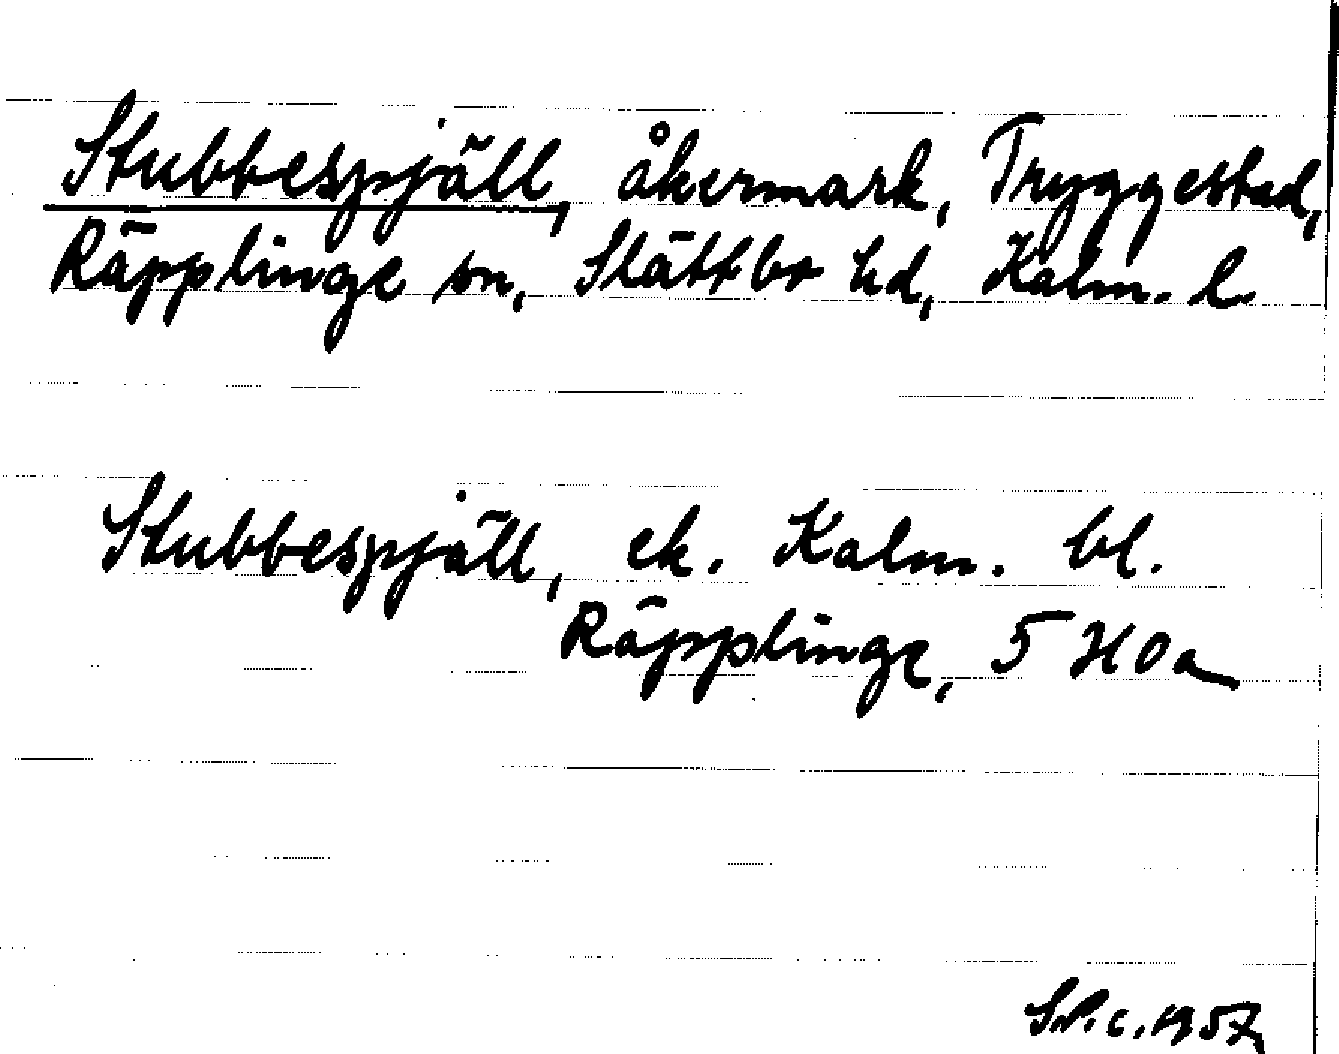 Stubbespjäll, åkermark, Tryggestad,
Räpplinge sn, Slättbo hd, Kalm. l.
Stubbespjäll, ek. Kalm. bl.
Räpplinge, 5 H 0 a
S.P. c. 1957